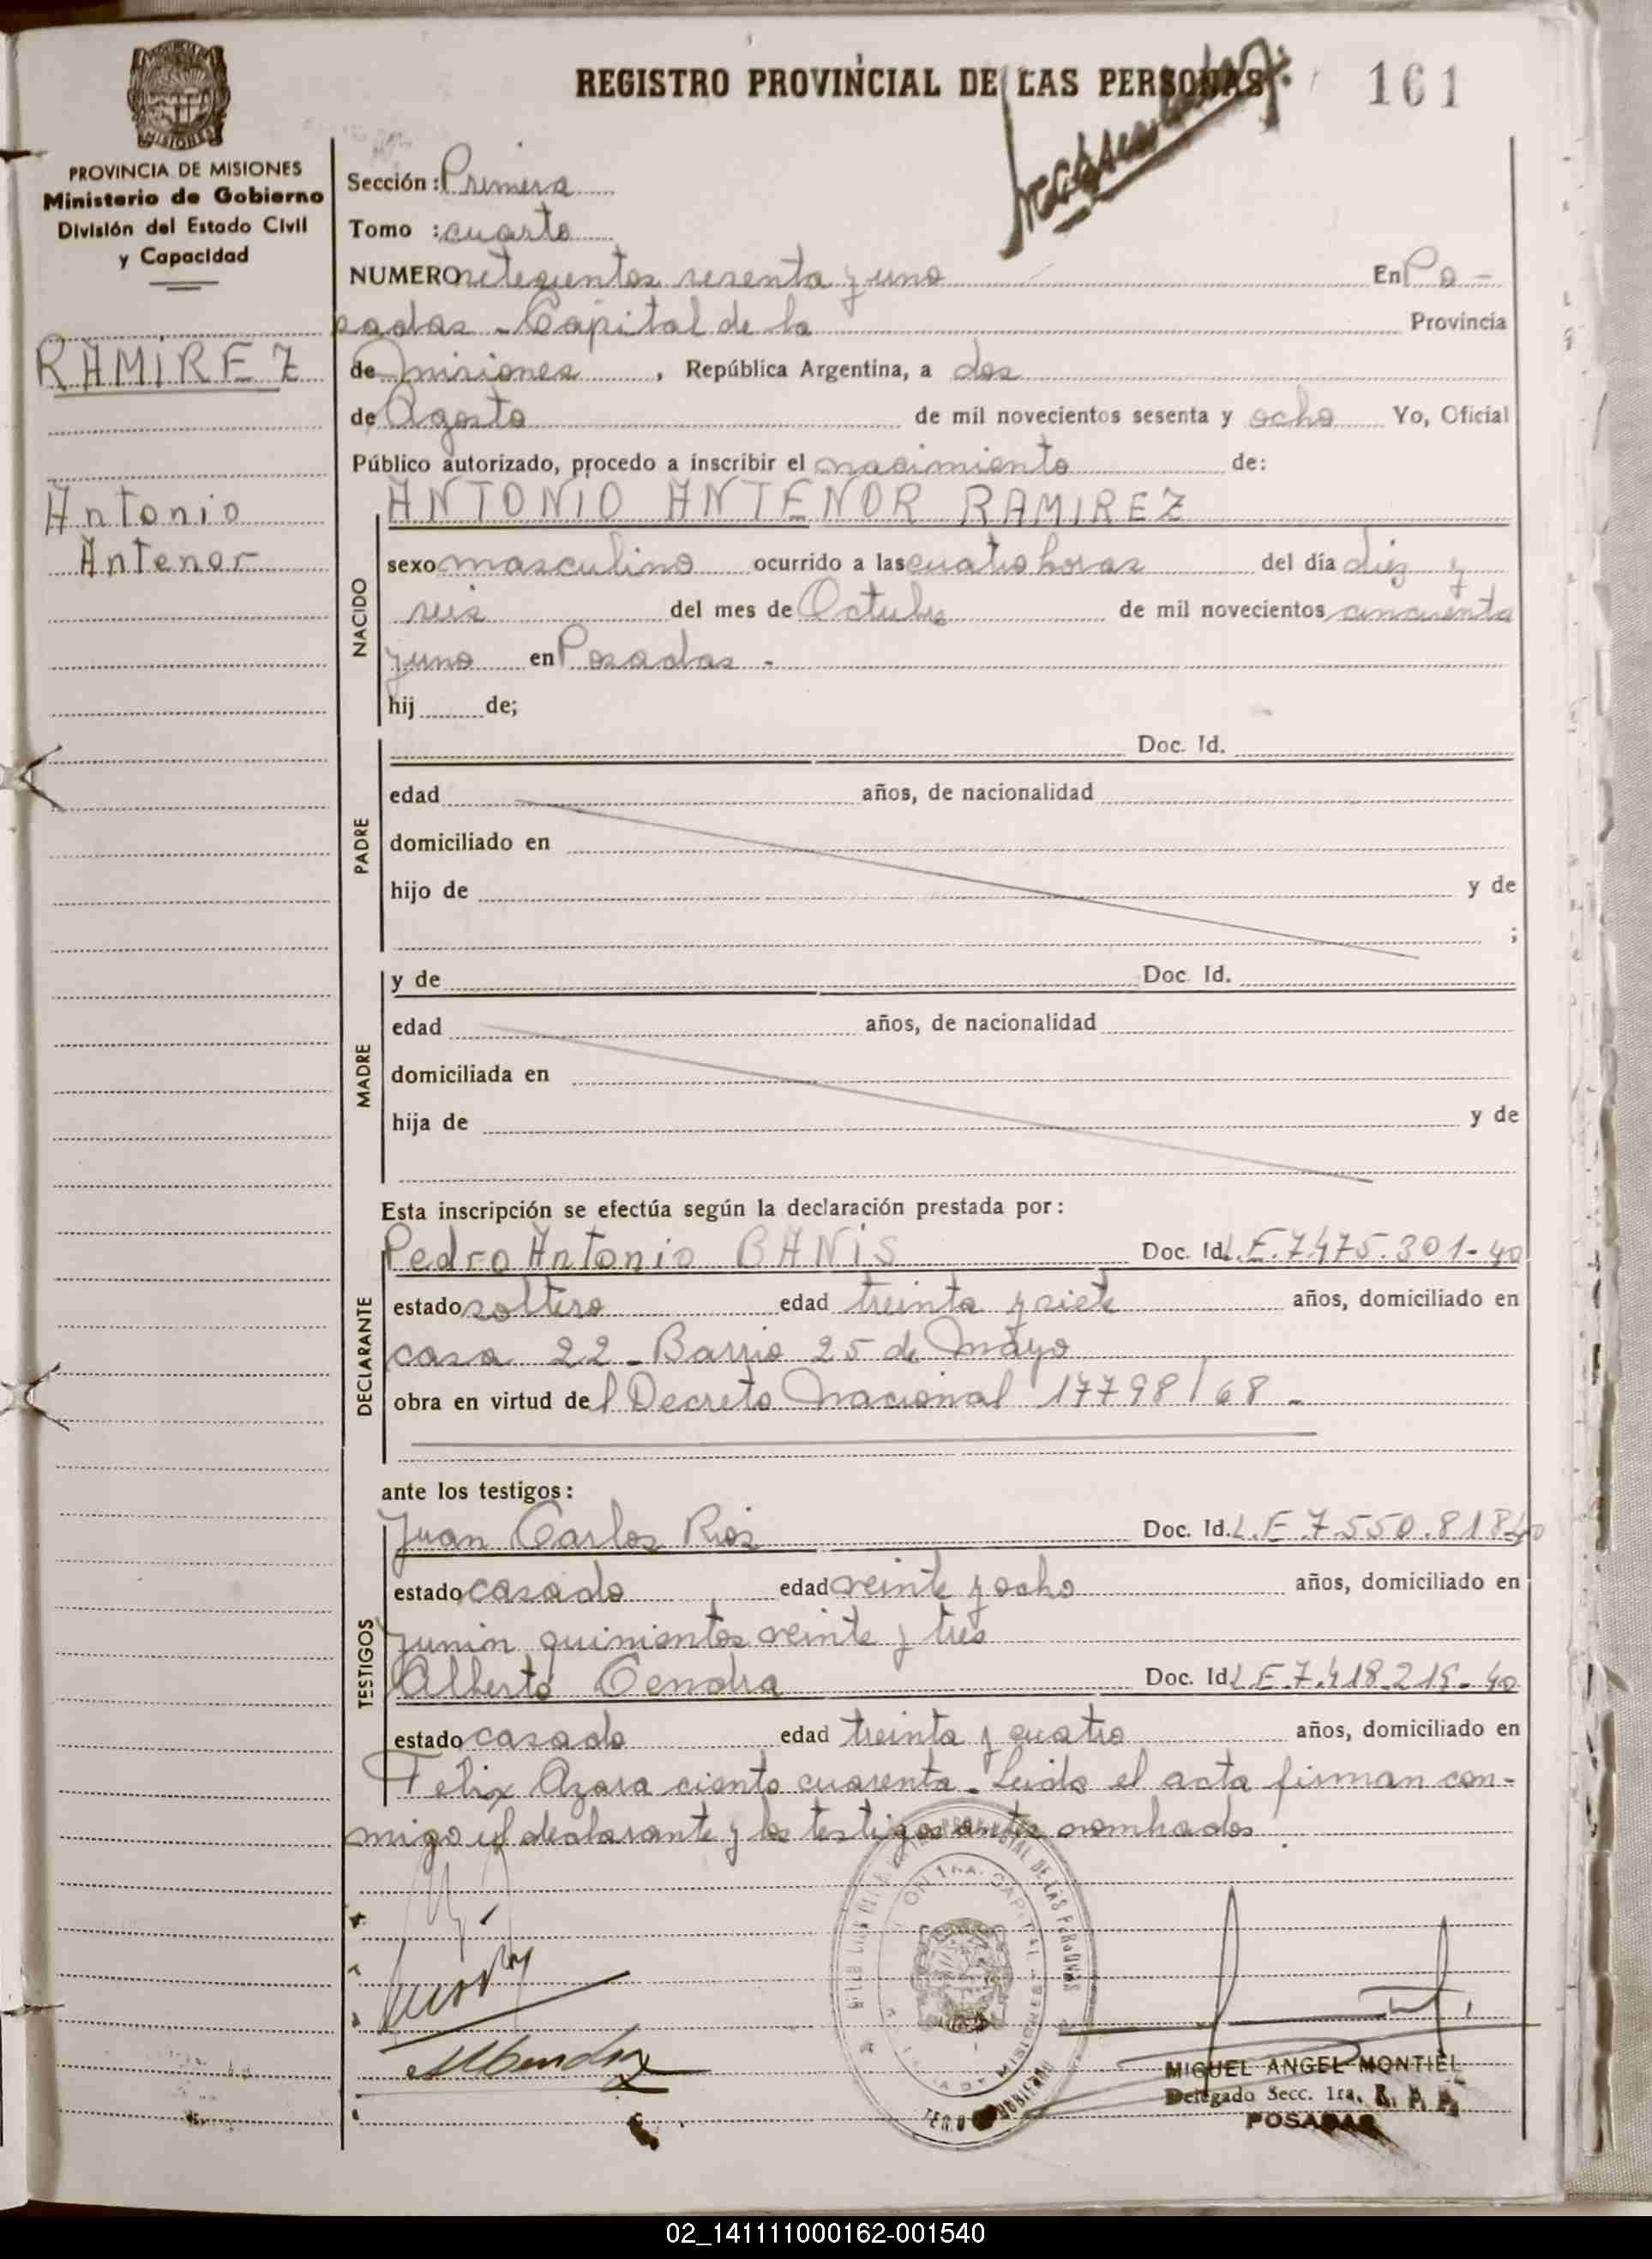 REGISTRO PROVINCIAL DE LAS PERSONAS
161
PROVINCIA DE MISIONES
Ministerio de Gobierno
División del Estado Civil
y Capacidad
RAMIREZ
Antonio
Antenor
Sección: Primera
Tomo : cuarto
NUMERO setecientos sesenta y uno En Po-
sadas - Capital de la Provincia
de Misiones, República Argentina, a dos
de Agosto de mil novecientos sesenta y ocho Yo, Oficial
Público autorizado, procedo a inscribir el nacimiento de:
ANTONIO ANTENOR RAMIREZ
NACIDO
sexo masculino ocurrido a las cuatro horas del día diez y
seis del mes de Octubre de mil novecientos cincuenta
y uno en Posadas -
hij de;
PADRE
Doc. Id.
edad años, de nacionalidad
domiciliado en
hijo de y de
;
MADRE
y de Doc. Id.
edad años, de nacionalidad
domiciliada en
hija de y de
Esta inscripción se efectúa según la declaración prestada por:
DECLARANTE
Pedro Antonio BANIS Doc. Id. L.E.7.475.301-40
estado soltero edad treinta y siete años, domiciliado en
casa 22 - Barrio 25 de Mayo
obra en virtud del Decreto Nacional 17798/68 -
ante los testigos:
TESTIGOS
Juan Carlos Rios Doc. Id. L.E 7.550.818-40
estado casado edad veinte y ocho años, domiciliado en
Junin quinientos veinte y tres
Alberto Cendra Doc. Id. L.E.7.418.215-40
estado casado edad treinta y cuatro años, domiciliado en
Felix Azara ciento cuarenta - Leida el acta firman con-
migo el declarante y los testigos antes nombrados.
MIGUEL ANGEL MONTIEL
Delegado Secc. 1ra. R. P. P.
POSADAS
02_141111000162-001540